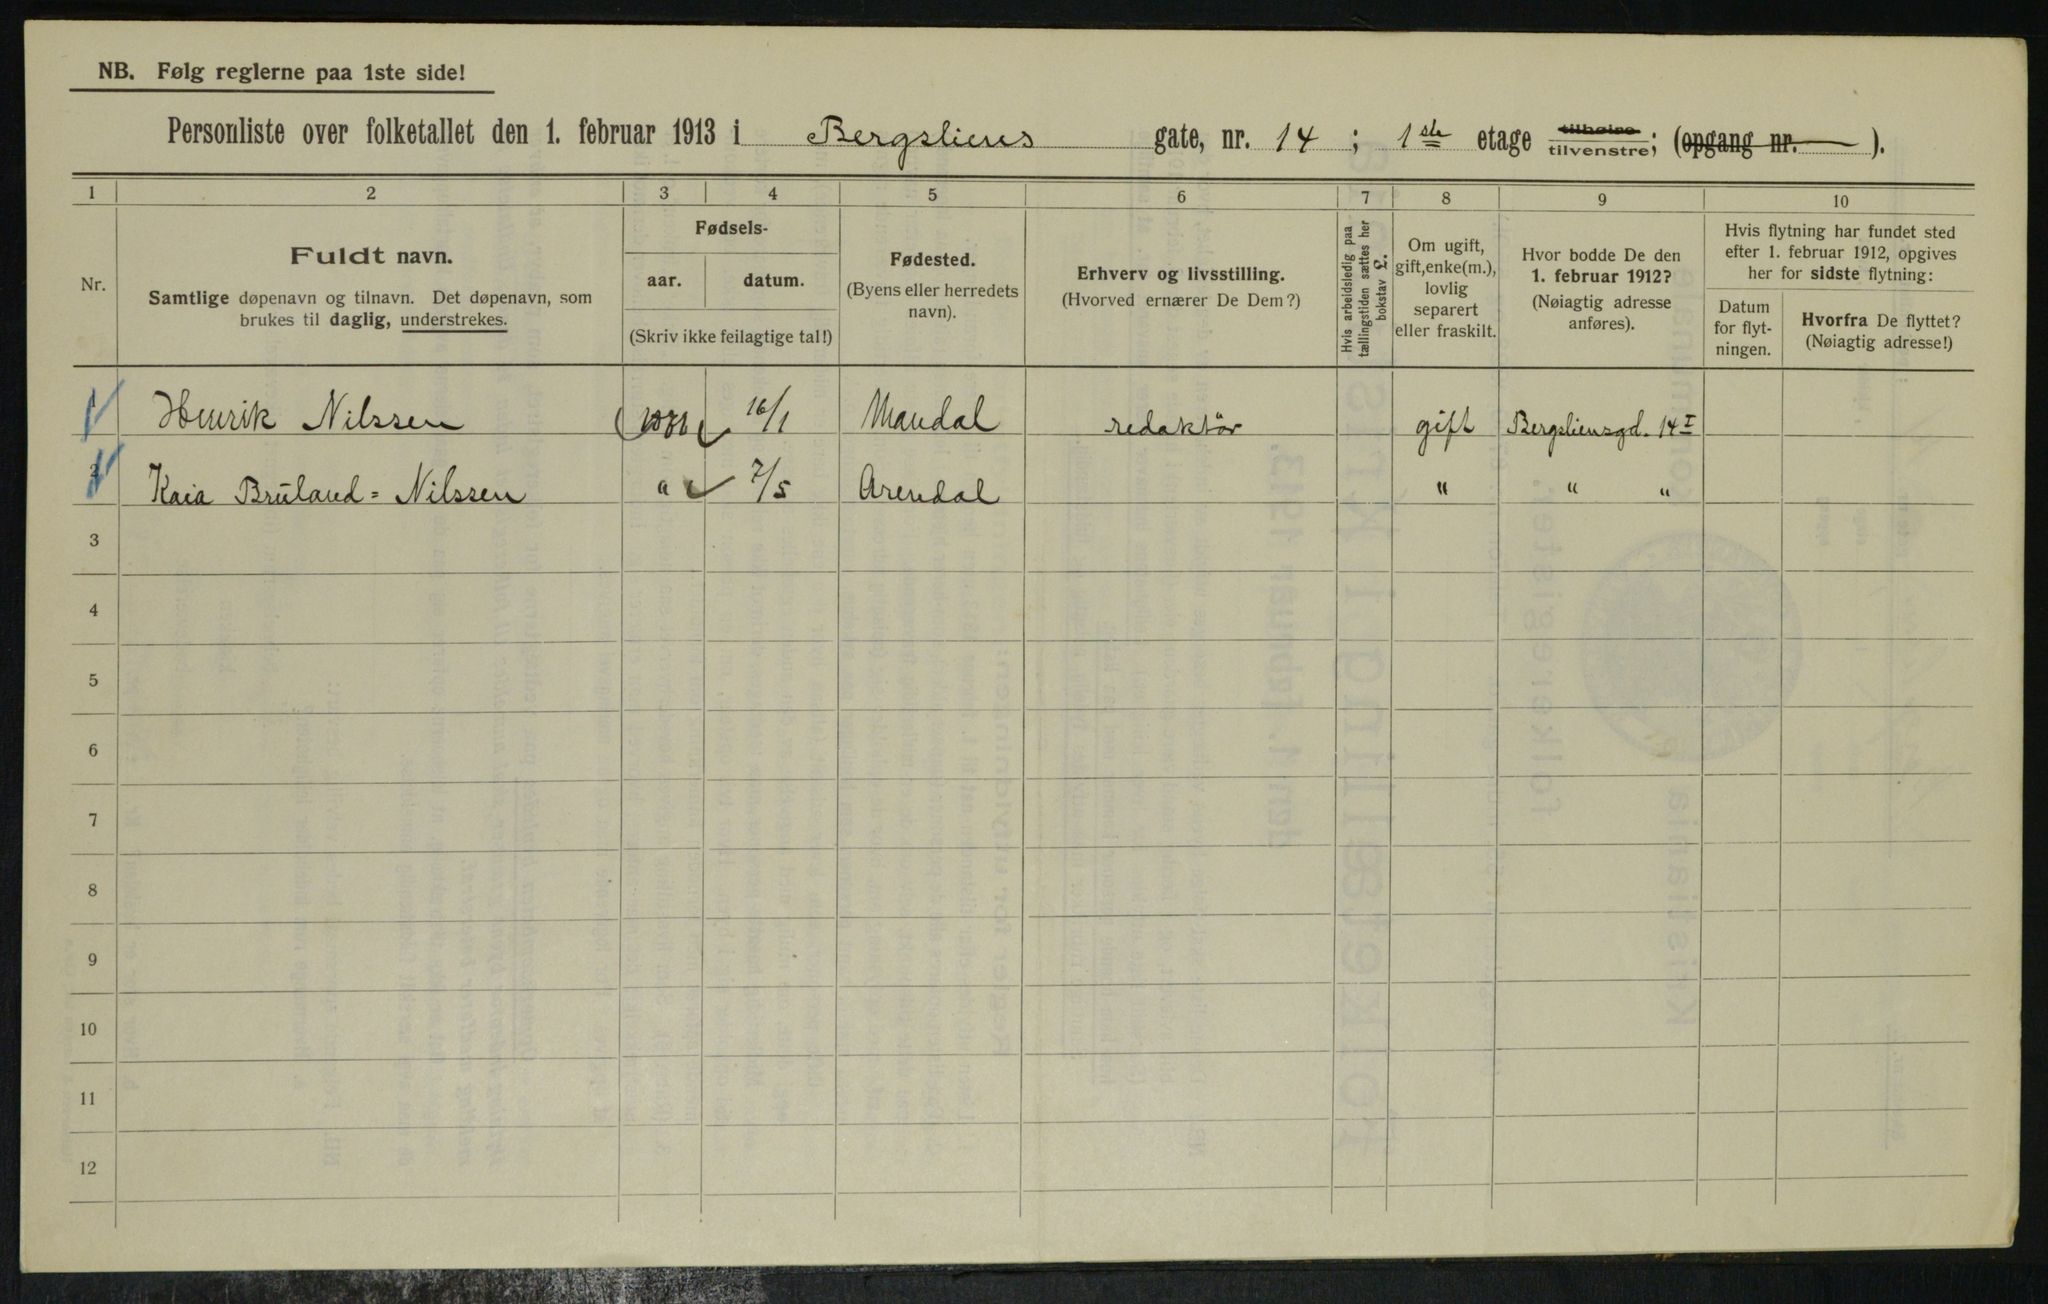 NB. Følg reglerne paa 1ste side!
Personliste over folketallet den 1. februar 1913 i Bergsliens gate, nr. 14 ; 1ste etage tilhøire tilvenstre; (opgang nr. ).
1 2 3 4 5 6 7 8 9 10
Nr.
Fuldt navn.
Samtlige døpenavn og tilnavn. Det døpenavn, som
brukes til daglig, understrekes.
Fødsels-
aar. datum.
(Skriv ikke feilagtige tal!)
Fødested.
(Byens eller herredets
navn).
Erhverv og livsstilling.
(Hvorved ernærer De Dem?)
Hvis arbeidsledig paa
tællingstiden sættes her
bokstav £.
Om ugift,
gift, enke(m.),
lovlig
separert
eller fraskilt.
Hvor bodde De den
1. februar 1912?
(Nøiagtig adresse
anføres).
Hvis flytning har fundet sted
efter 1. februar 1912, opgives
her for sidste flytning:
Datum
for flyt-
ningen.
Hvorfra De flyttet?
(Nøiagtig adresse!)
1 Henrik Nilssen 16/1 Mandal redaktör gift Bergsliensgd. 14 I
2 Kaia Bruland = Nilssen " 7/5 Arendal " " "
3
4
5
6
7
8
9
10
11
12